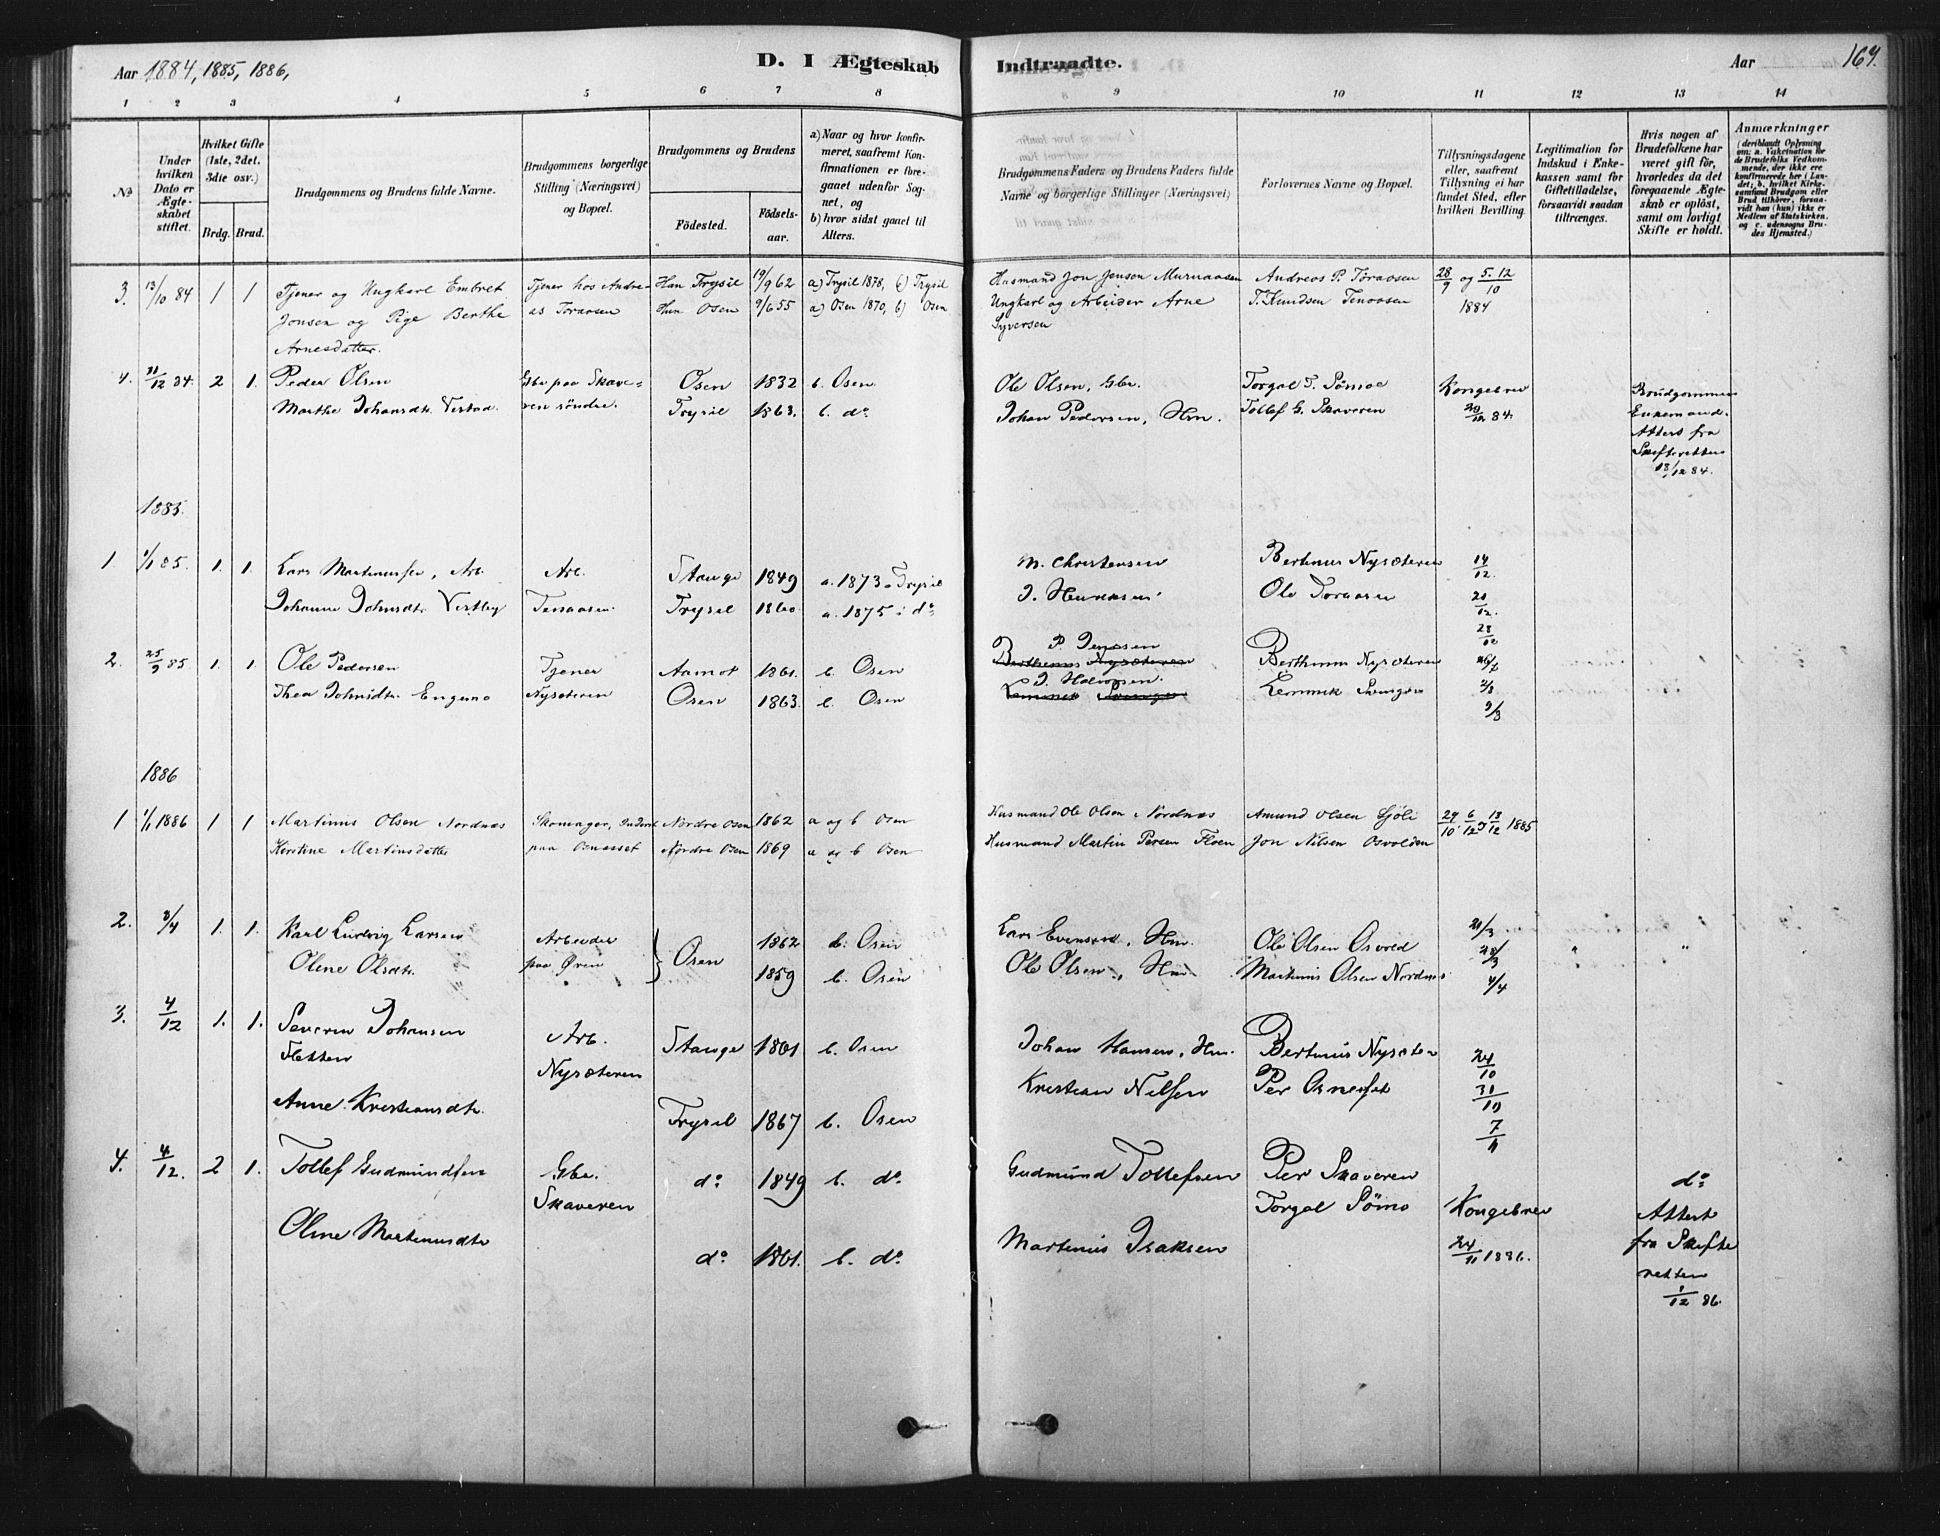 Aar 1884, 1885, 1886,
D. I Ægteskab
Indtraadte.
Aar
164.
1 2 3 4 5 6 7 8
9 10 11 12 13 14
No
Under hvilken Dato er Ægteskabet stiftet.
Hvilket Gifte (1ste, 2det. 3die osv.)
Brdg. Brud.
Brudgommens og Brudens fulde Navne.
Brudgommens borgerlige Stilling (Næringsvei) og Bopæl.
Brudgommens og Brudens
Födested.
Födselsaar.
a) Naar og hvor konfirmeret, saafremt Konfirmationen er foregaaet udenfor Sognet, og
b) hvor sidst gaaet til Alters.
Brudgommens Faders og Brudens Faders fulde Navne og borgerlige Stillinger (Næringsvei)
Forlovernes Navne og Bopæl.
Tillysningsdagene eller, saafremt Tillysning ei har fundet Sted, efter hvilken Bevilling.
Legitimation for Indskud i Enkekassen samt for Giftetilladelse, forsaavidt saadan tiltrænges.
Hvis nogen af Brudefolkene har været gift för, hvorledes da det foregaaende Ægteskab er oplöst, samt om lovligt Skifte er holdt.
Anmærkninger (deriblandt Oplysning om: a. Vakcination for de Brudefolks Vedkommende, der ikke ere konfirmerede her i Landet; b. hvilket Kirkesamfund Brudgom eller Brud tilhörer, forsaavidt han (hun) ikke er Medlem af Statskirken. og c. udensogns Brudes Hjemsted.)
3. 13/10 84 1 1 Tjener og Ungkarl Embret Tjener hos Andre- Han Trysil 19/9 62 a) Trysil 1878, b) Trysil Husmand Jon Jonsen Murnaasen Andreas P. Toraasen 28/9 og 5. 12/10
Jonsen og Pige Berthe as Toraasen Hun Osen 9/6 55 a) Osen 1870, b) Osen Ungkarl og Arbeider Arne T. Knudsen Tenaasen 1884
Arnesdatter. Syversen
4. 31/12 84. 2 1. Peder Olsen Gbr paa Skave- Osen 1832 b. Osen Ole Olsen, Gbr. Torgal T. Sømoe Kongebrev Brudgommen
Marthe Johansdt. Vestad. ren søndre. Trysil 1863. b. do Johan Pedersen, Hm. Tollef G. Skaveren 29/12 84. Enkemand.
Attest fra
Skifteretten
13/12 84.
1885.
1. 1/1 85. 1. 1. Lars Martinusen, Arb. Arb. Stange 1849 a. 1873 i Trysil M. Christensen Bertinus Nysæteren 14/12.
Johanne Johnsdt. Vestby Tenaasen. Trysil 1860 a. 1875 i do J. Henriksen. Ole Toraasen 21/12.
28/12
2. 25/3 85. 1. 1. Ole Pedersen Tjener Aamot 1861. b. Osen P. Jensen Berthinus Nysæteren
Thea Johnsdt. Engemo Nysæteren Osen 1863. b. Osen J. Halvorsen. Lemmik 2/3
9/3
1886
1 1/1 1886 1 1 Martinus Olsen Nordnæs Skomager, Inderst Nordre Osen 1862 a og b Osen Husmand Ole Olsen Nordnæs Amund Olsen Sjöli 29/10 6/12 13/12 1885
Kirstine Martinsdatter paa Osnæsset Nordre Osen 1869 a og b Osen Husmand Martin Persen Floen Jon Nilsen Osvolden
2. 3/4 1. 1. Karl Ludvig Larsen Arbeider Osen 1862 b. Osen Lars Evensen, Hm. Ole Olsen Osvold 21/3
Oline Olsdt. paa Øren 1859 b. Osen Ole Olsen, Hm Martinus Olsen Nordnes 28/3
4/4
3. 4/12 1. 1. Severin Johansen Arb. Stange 1861 b. Osen Johan Hansen, Hm. Bertinus Nysæter 24/10
Fletten Nysæteren Kristian Nilsen Per Osneset 31/10
Anne Kristiansdt. Trysil 1867 b. Osen 7/11
4. 4/12. 2 1. Tollef Gudmundsen Gbr. do 1849 b. do Gudmund Tollefsen Per Skaveren do
Skaveren Torgal Sömo Kongebrev Attest
Oline Martinusdt. do 1861. b. do Martinus Isaksen 24/11 1886. fra Skifte
retten
1/12 86.